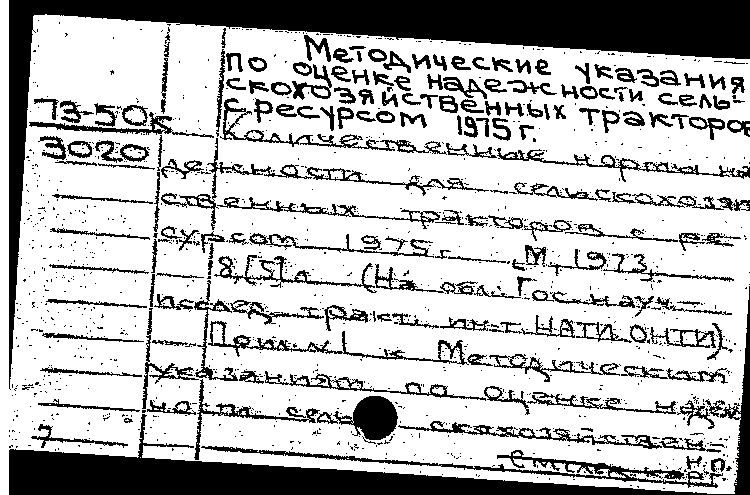 Методические указания
по оценке надежности сель-
скохозяйственных тракторов
с ресурсом 1975 г.
73-50к
3020
Количественные нормы на
дежности для сельскохозяй
ственных тракторов с ре
сурсом 1975г. М, 1973,
8,[5]л (На обл.: Гос. науч-
исслед. тракт. ин-т НАТИ ОНТИ)
Прил. №1 к Методическим
указаниям по оценке надеж
ности сель скохозяйствен-
н.п.
7